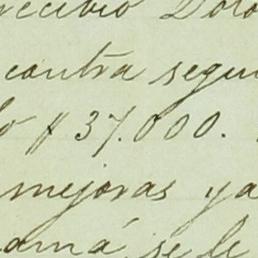 recibió Dolo
contra segu
lo $37.000.
mejoras ya
amá se le